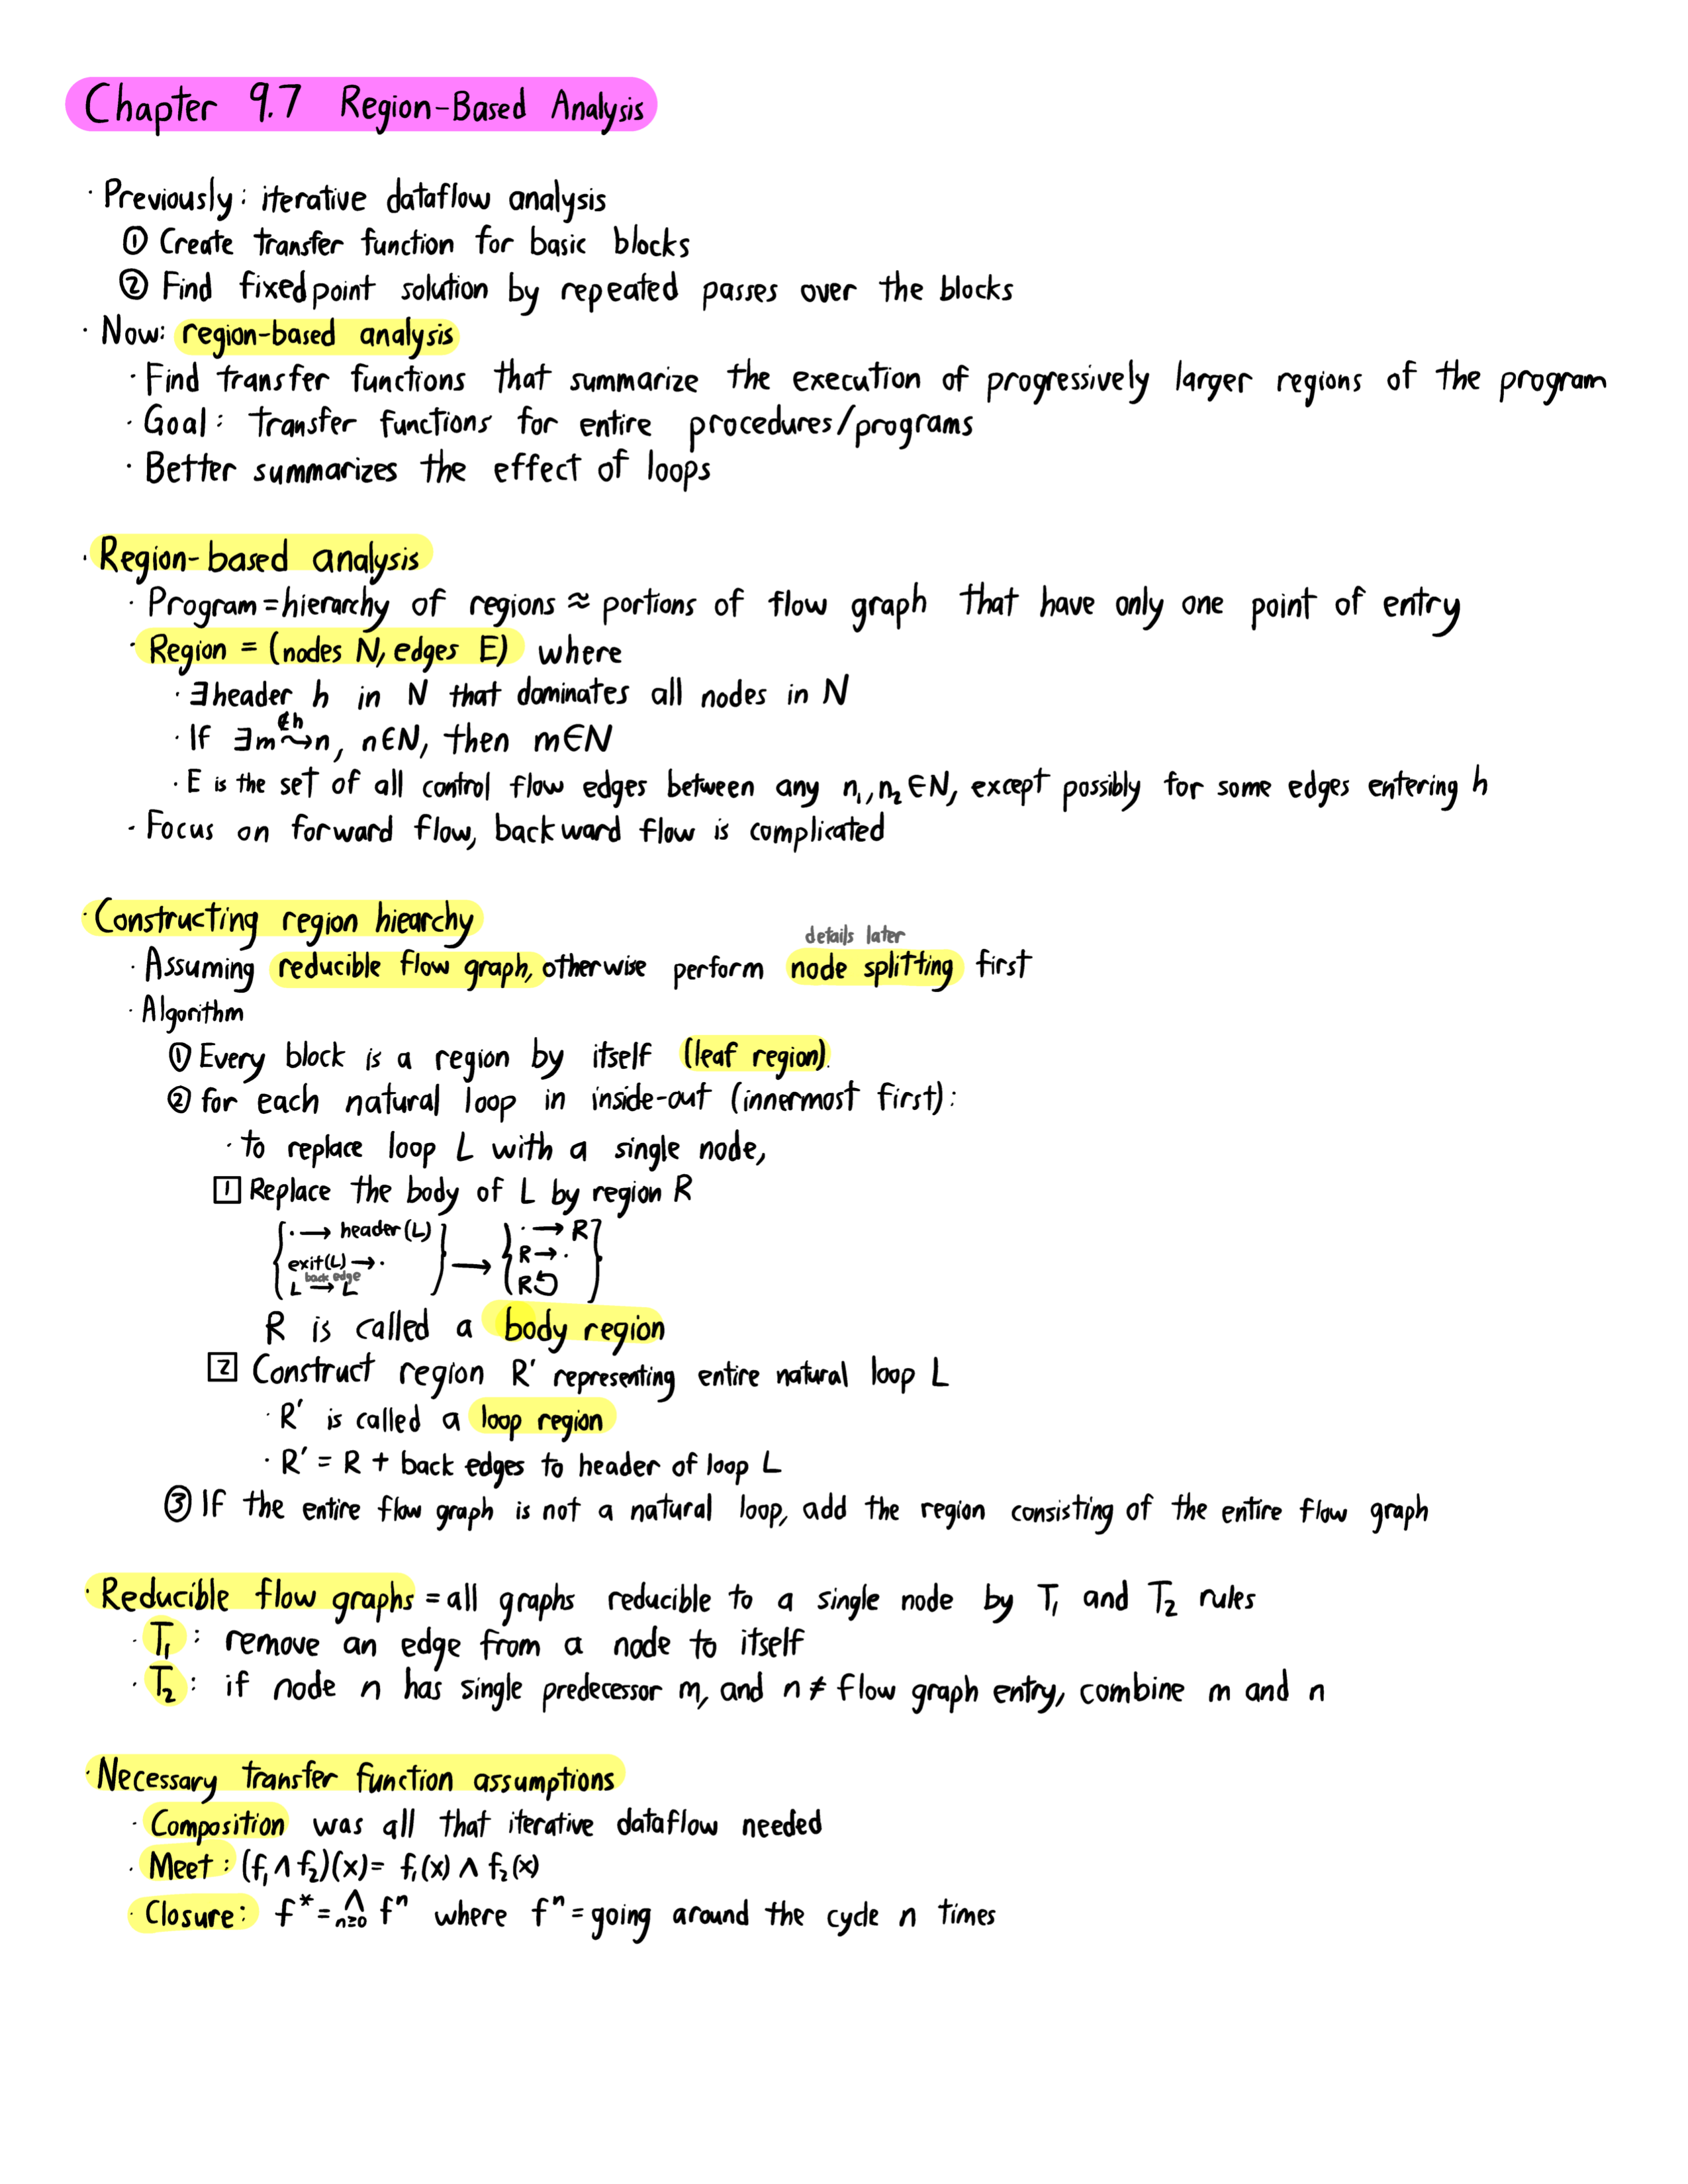 Chapter 9.7 Region-Based Analysis
· Previously: iterative dataflow analysis
① Create transfer function for basic blocks
② Find fixedpoint solution by repeated passes over the blocks
· Now: region-based analysis
· Find transfer functions that summarize the execution of progressively larger regions of the program
· Goal: transfer functions for entire procedures/programs
· Better summarizes the effect of loops
· Region-based analysis
· Program = hierarchy of regions ≈ portions of flow graph that have only one point of entry
· Region = (nodes N, edges E) where
· ∃header h in N that dominates all nodes in N
∉h
· If ∃m⤳n, n∈N, then m∈N
· E is the set of all control flow edges between any n₁, n₂ ∈N, except possibly for some edges entering h
· Focus on forward flow, backward flow is complicated
· Constructing region hiearchy
details later
· Assuming reducible flow graph, otherwise perform node splitting first
· Algorithm
① Every block is a region by itself (leaf region).
② for each natural loop in inside-out (innermost first):
· to replace loop L with a single node,
1 Replace the body of L by region R
{ · → header(L) } → { · → R }
exit(L) → · R → ·
back edge
L → L R↺
R is called a body region
2 Construct region R′ representing entire natural loop L
· R′ is called a loop region
· R′ = R + back edges to header of loop L
③ If the entire flow graph is not a natural loop, add the region consisting of the entire flow graph
· Reducible flow graphs = all graphs reducible to a single node by T₁ and T₂ rules
· T₁: remove an edge from a node to itself
· T₂: if node n has single predecessor m, and n ≠ flow graph entry, combine m and n
· Necessary transfer function assumptions
· Composition was all that iterative dataflow needed
· Meet: (f₁ ∧ f₂)(x) = f₁(x) ∧ f₂(x)
· Closure: f* = ∧ₙ≥₀ fⁿ where fⁿ = going around the cycle n times